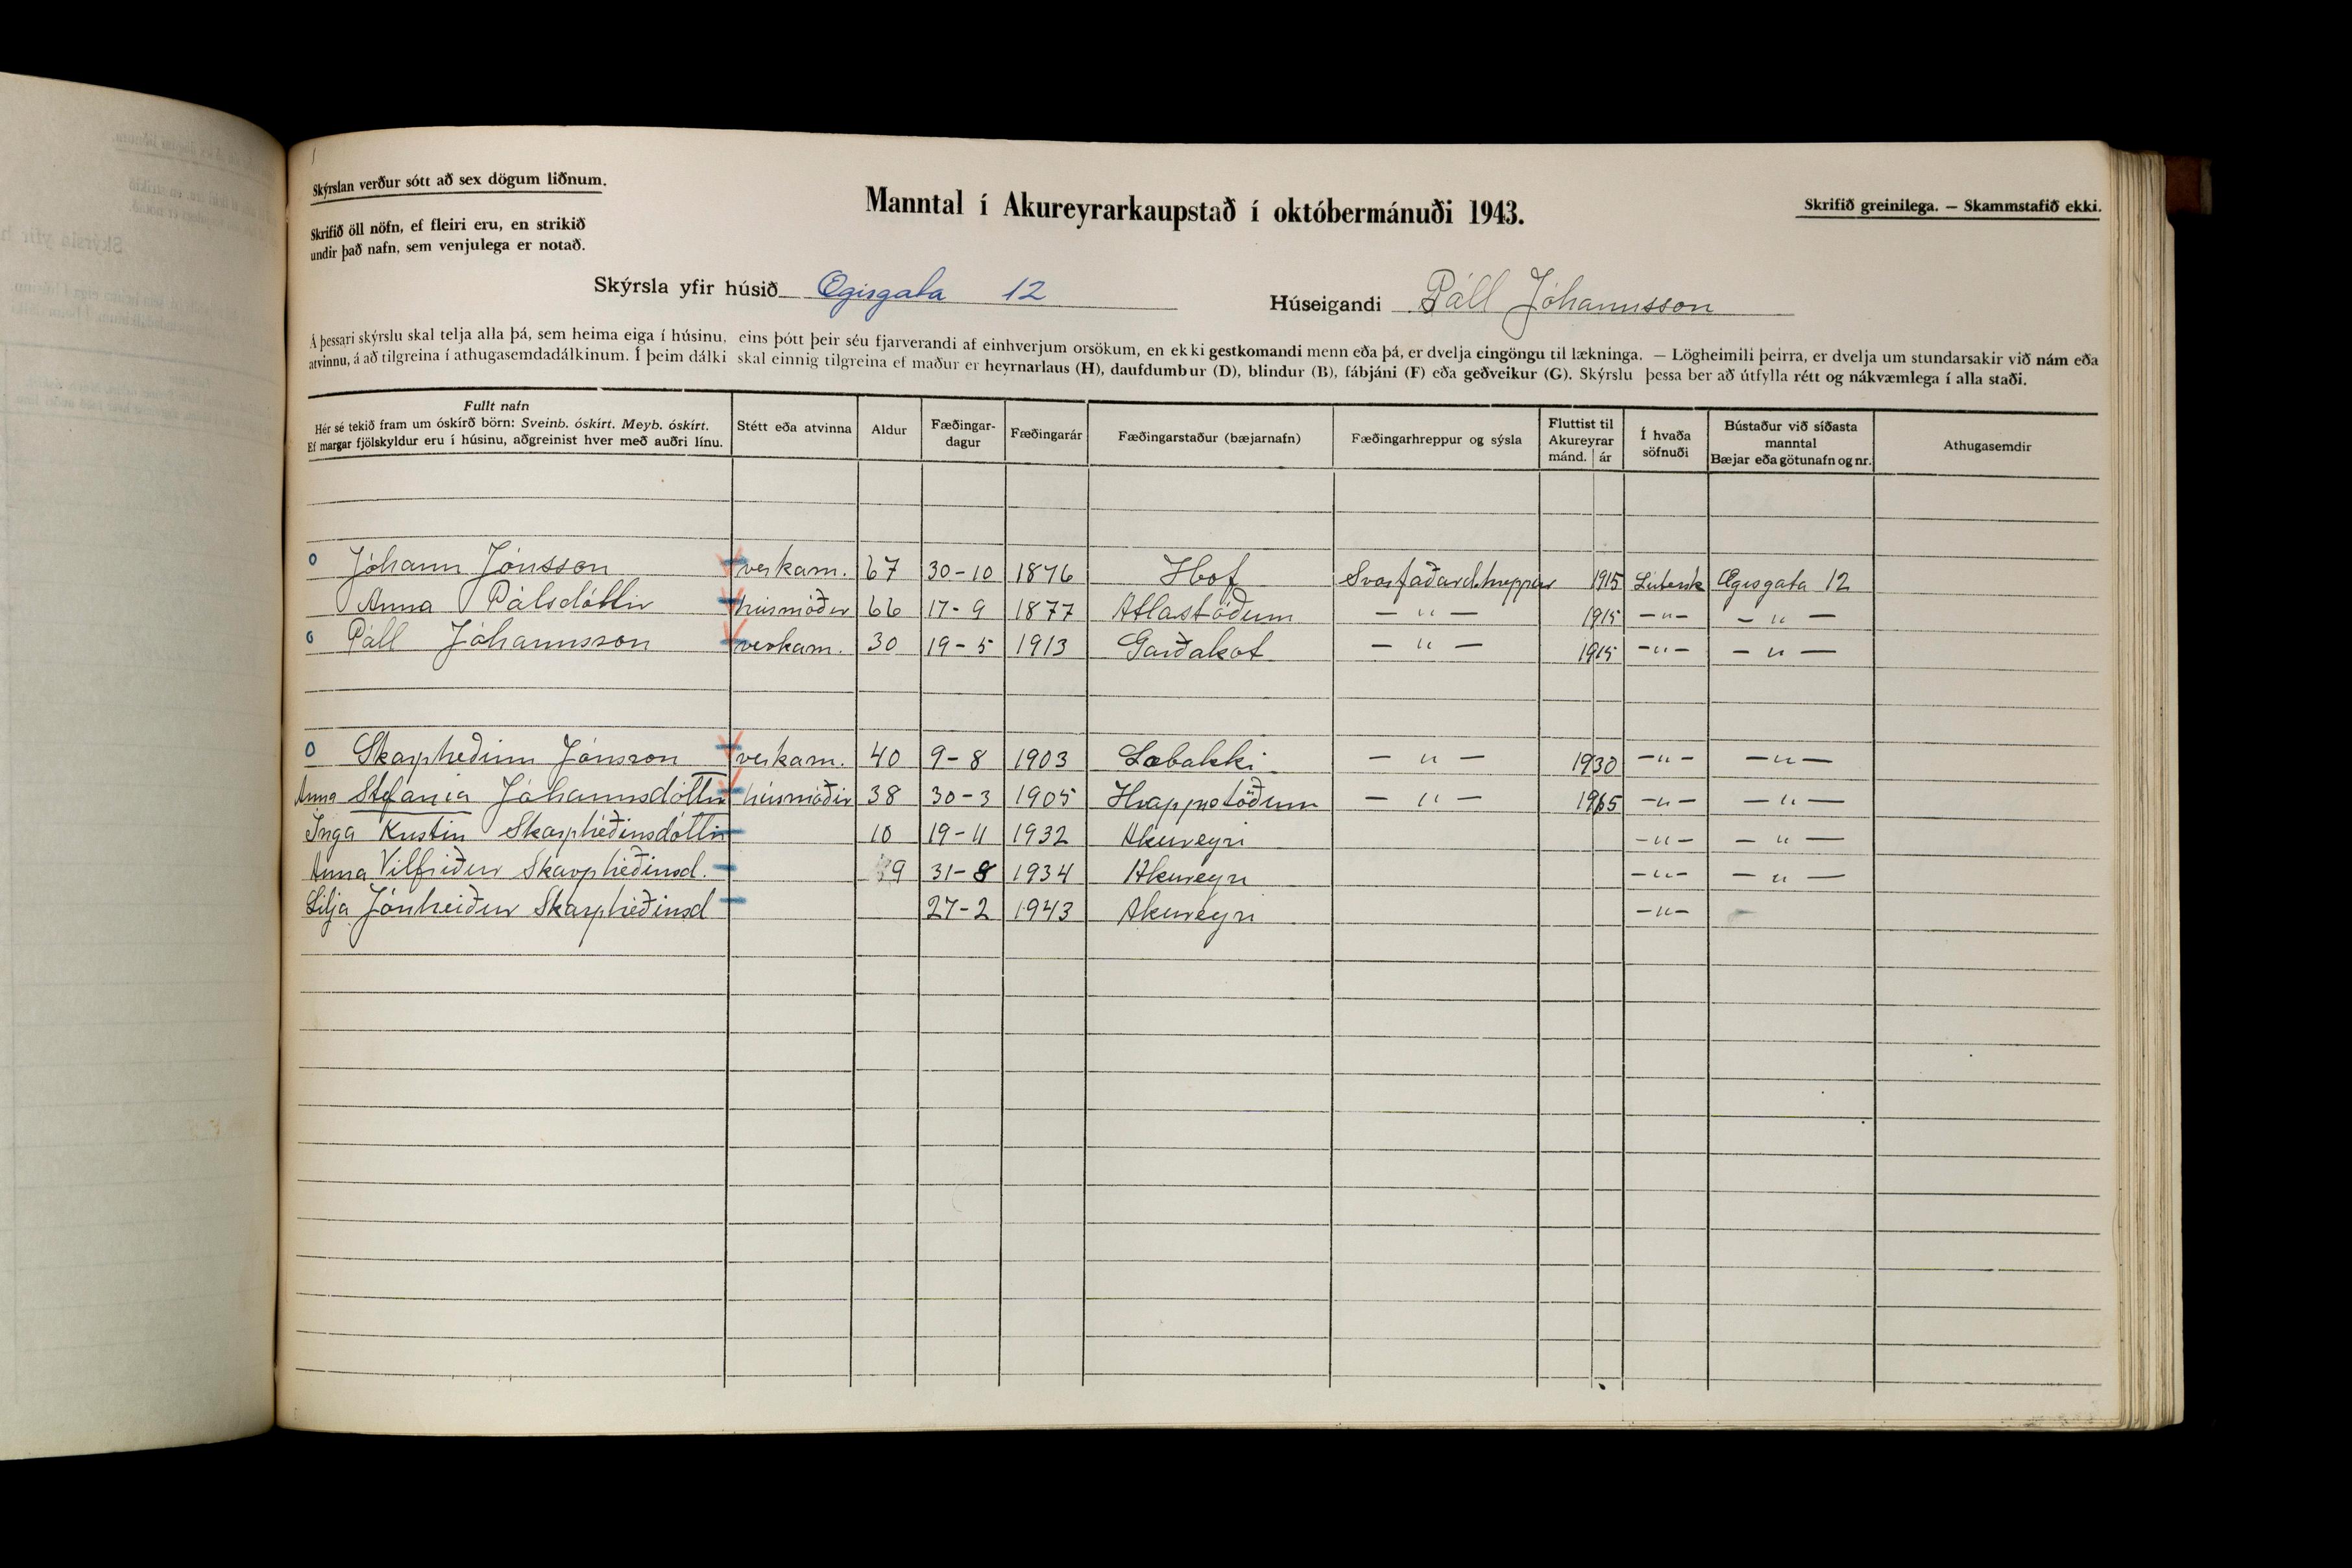 Skýrslan verður sótt að sex dögum liðnum.
Skrifið öll nöfn, ef fleiri eru, en strikið
undir það nafn, sem venjulega er notað.
Manntal í Akureyrarkaupstað í októbermánuði 1943.
Skrifið greinilega. — Skammstafið ekki.
Skýrsla yfir húsið Ægisgata 12
Húseigandi Páll Jóhannsson
Á þessari skýrslu skal telja alla þá, sem heima eiga í húsinu, eins þótt þeir séu fjarverandi af einhverjum orsökum, en ekki gestkomandi menn eða þá, er dvelja eingöngu til lækninga. — Lögheimili þeirra, er dvelja um stundarsakir við nám eða
atvinnu, á að tilgreina í athugasemdadálkinum. Í þeim dálki skal einnig tilgreina ef maður er heyrnarlaus (H), daufdumbur (D), blindur (B), fábjáni (F) eða geðveikur (G). Skýrslu þessa ber að útfylla rétt og nákvæmlega í alla staði.
Fullt nafn
Hér sé tekið fram um óskírð börn: Sveinb. óskírt. Meyb. óskírt.
Ef margar fjölskyldur eru í húsinu, aðgreinist hver með auðri línu.
Stétt eða atvinna
Aldur
Fæðingar-
dagur
Fæðingarár
Fæðingarstaður (bæjarnafn)
Fæðingarhreppur og sýsla
Fluttist til
Akureyrar
mánd. ár
Í hvaða
söfnuði
Bústaður við síðasta
manntal
Bæjar eða götunafn og nr.
Athugasemdir
Jóhann Jónsson verkam. 67 30-10 1876 Hof Svarfaðard.hreppur 1915 Lútersk Ægisgata 12
Anna Pálsdóttir húsmóðir 66 17-9 1877 Atlastöðum — " — 1915 — " — — " —
Páll Jóhannsson verkam. 30 19-5 1913 Garðakot — " — 1915 — " — — " —
Skarphéðinn Jónsson verkam. 40 9-8 1903 — " — 1930 — " — — " —
Anna Stefanía Jóhannsdóttir húsmóðir 38 30-3 1905 — " — — " — — " —
Inga Kristín Skarphéðinsdóttir 10 19-11 1932 Akureyri — " — — " —
Anna Vilfríður Skarphéðinsd. 9 31-8 1934 Akureyri — " — — " —
Lilja Jónheiður Skarphéðinsd 27-2 1943 Akureyri — " —